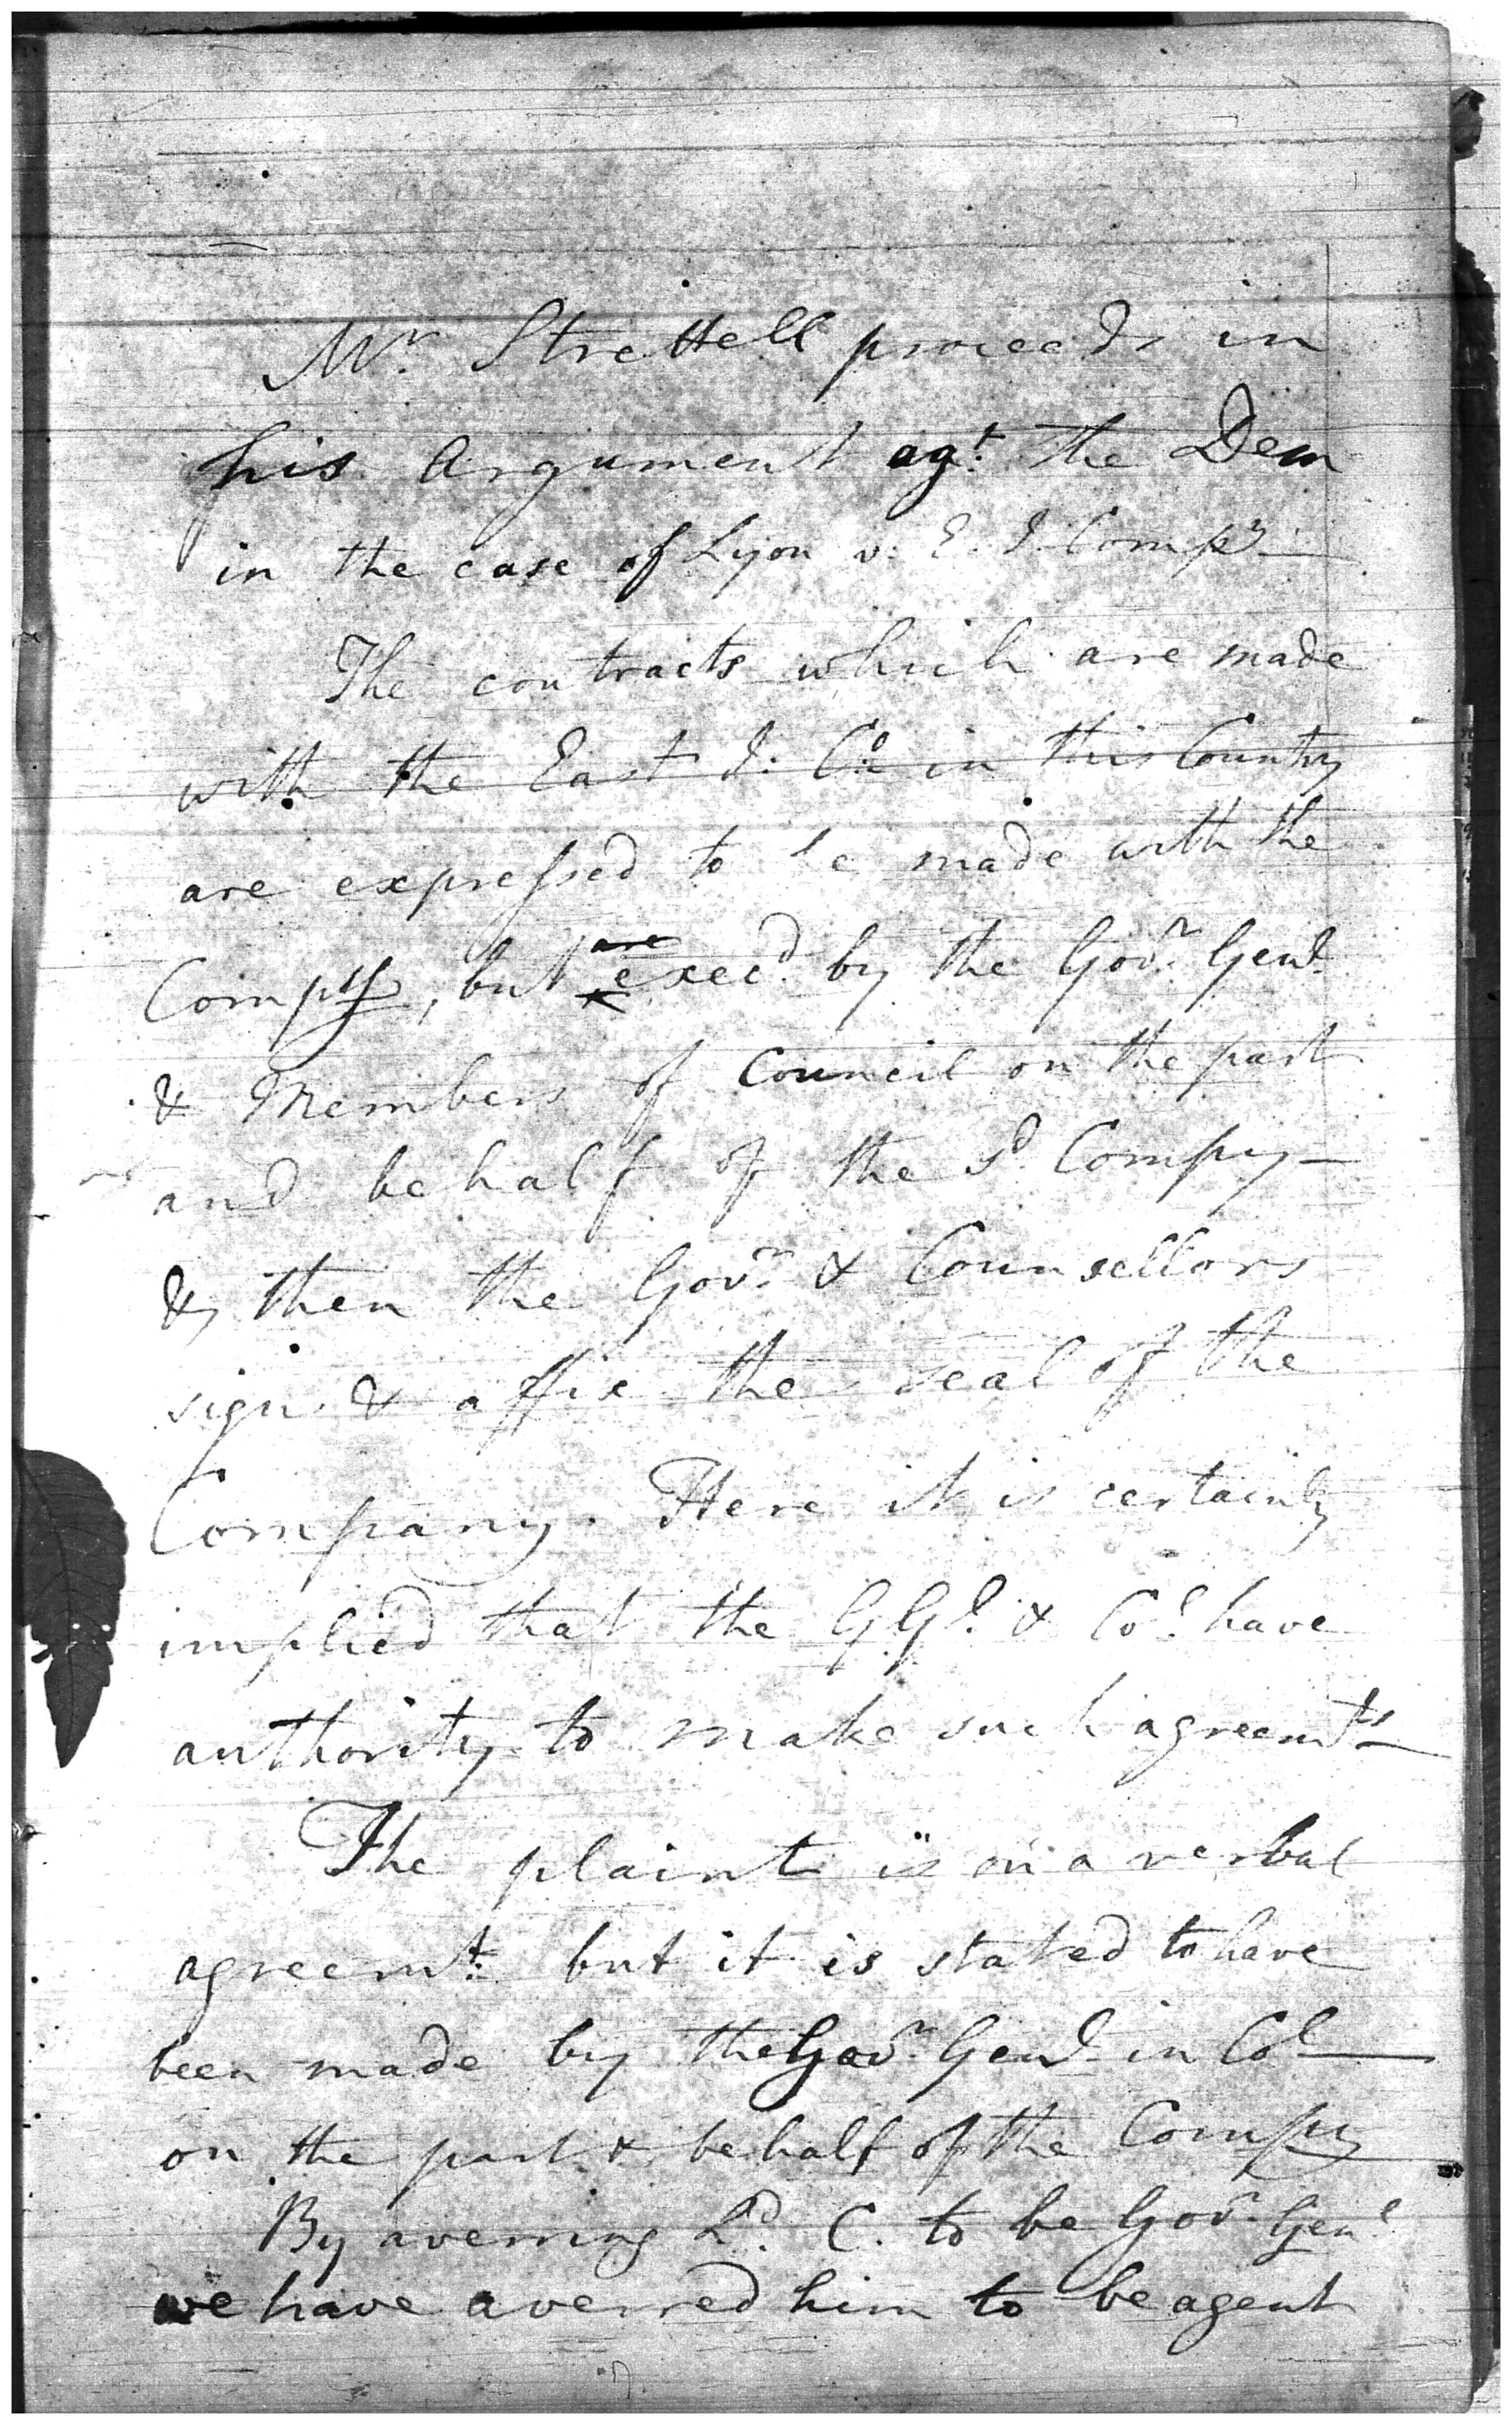 Mr. Strettell proceeds in
his Argument agt. the Dem
in the case of Lyon v. E. I. Compy
The contracts which are made
with the East I: Co. in this Country
are expressed to be made with the
Compy, but are execd. by the Govr. Genl.
& Members of Council on the part
and behalf of the Sd. Compy
& then the Govr. & Counsellors
sign & affix the seal of the
Company. Here it is certainly
implied that the G Gl. & Col. have
authority to make such agreemts
The plaint is on a verbal
agreemt. but it is stated to have
been made by the Govr. Genl. in Col
on the part & behalf of the Compy
By averring Ld. C. to be Govr. Genl
we have averred him to be agent